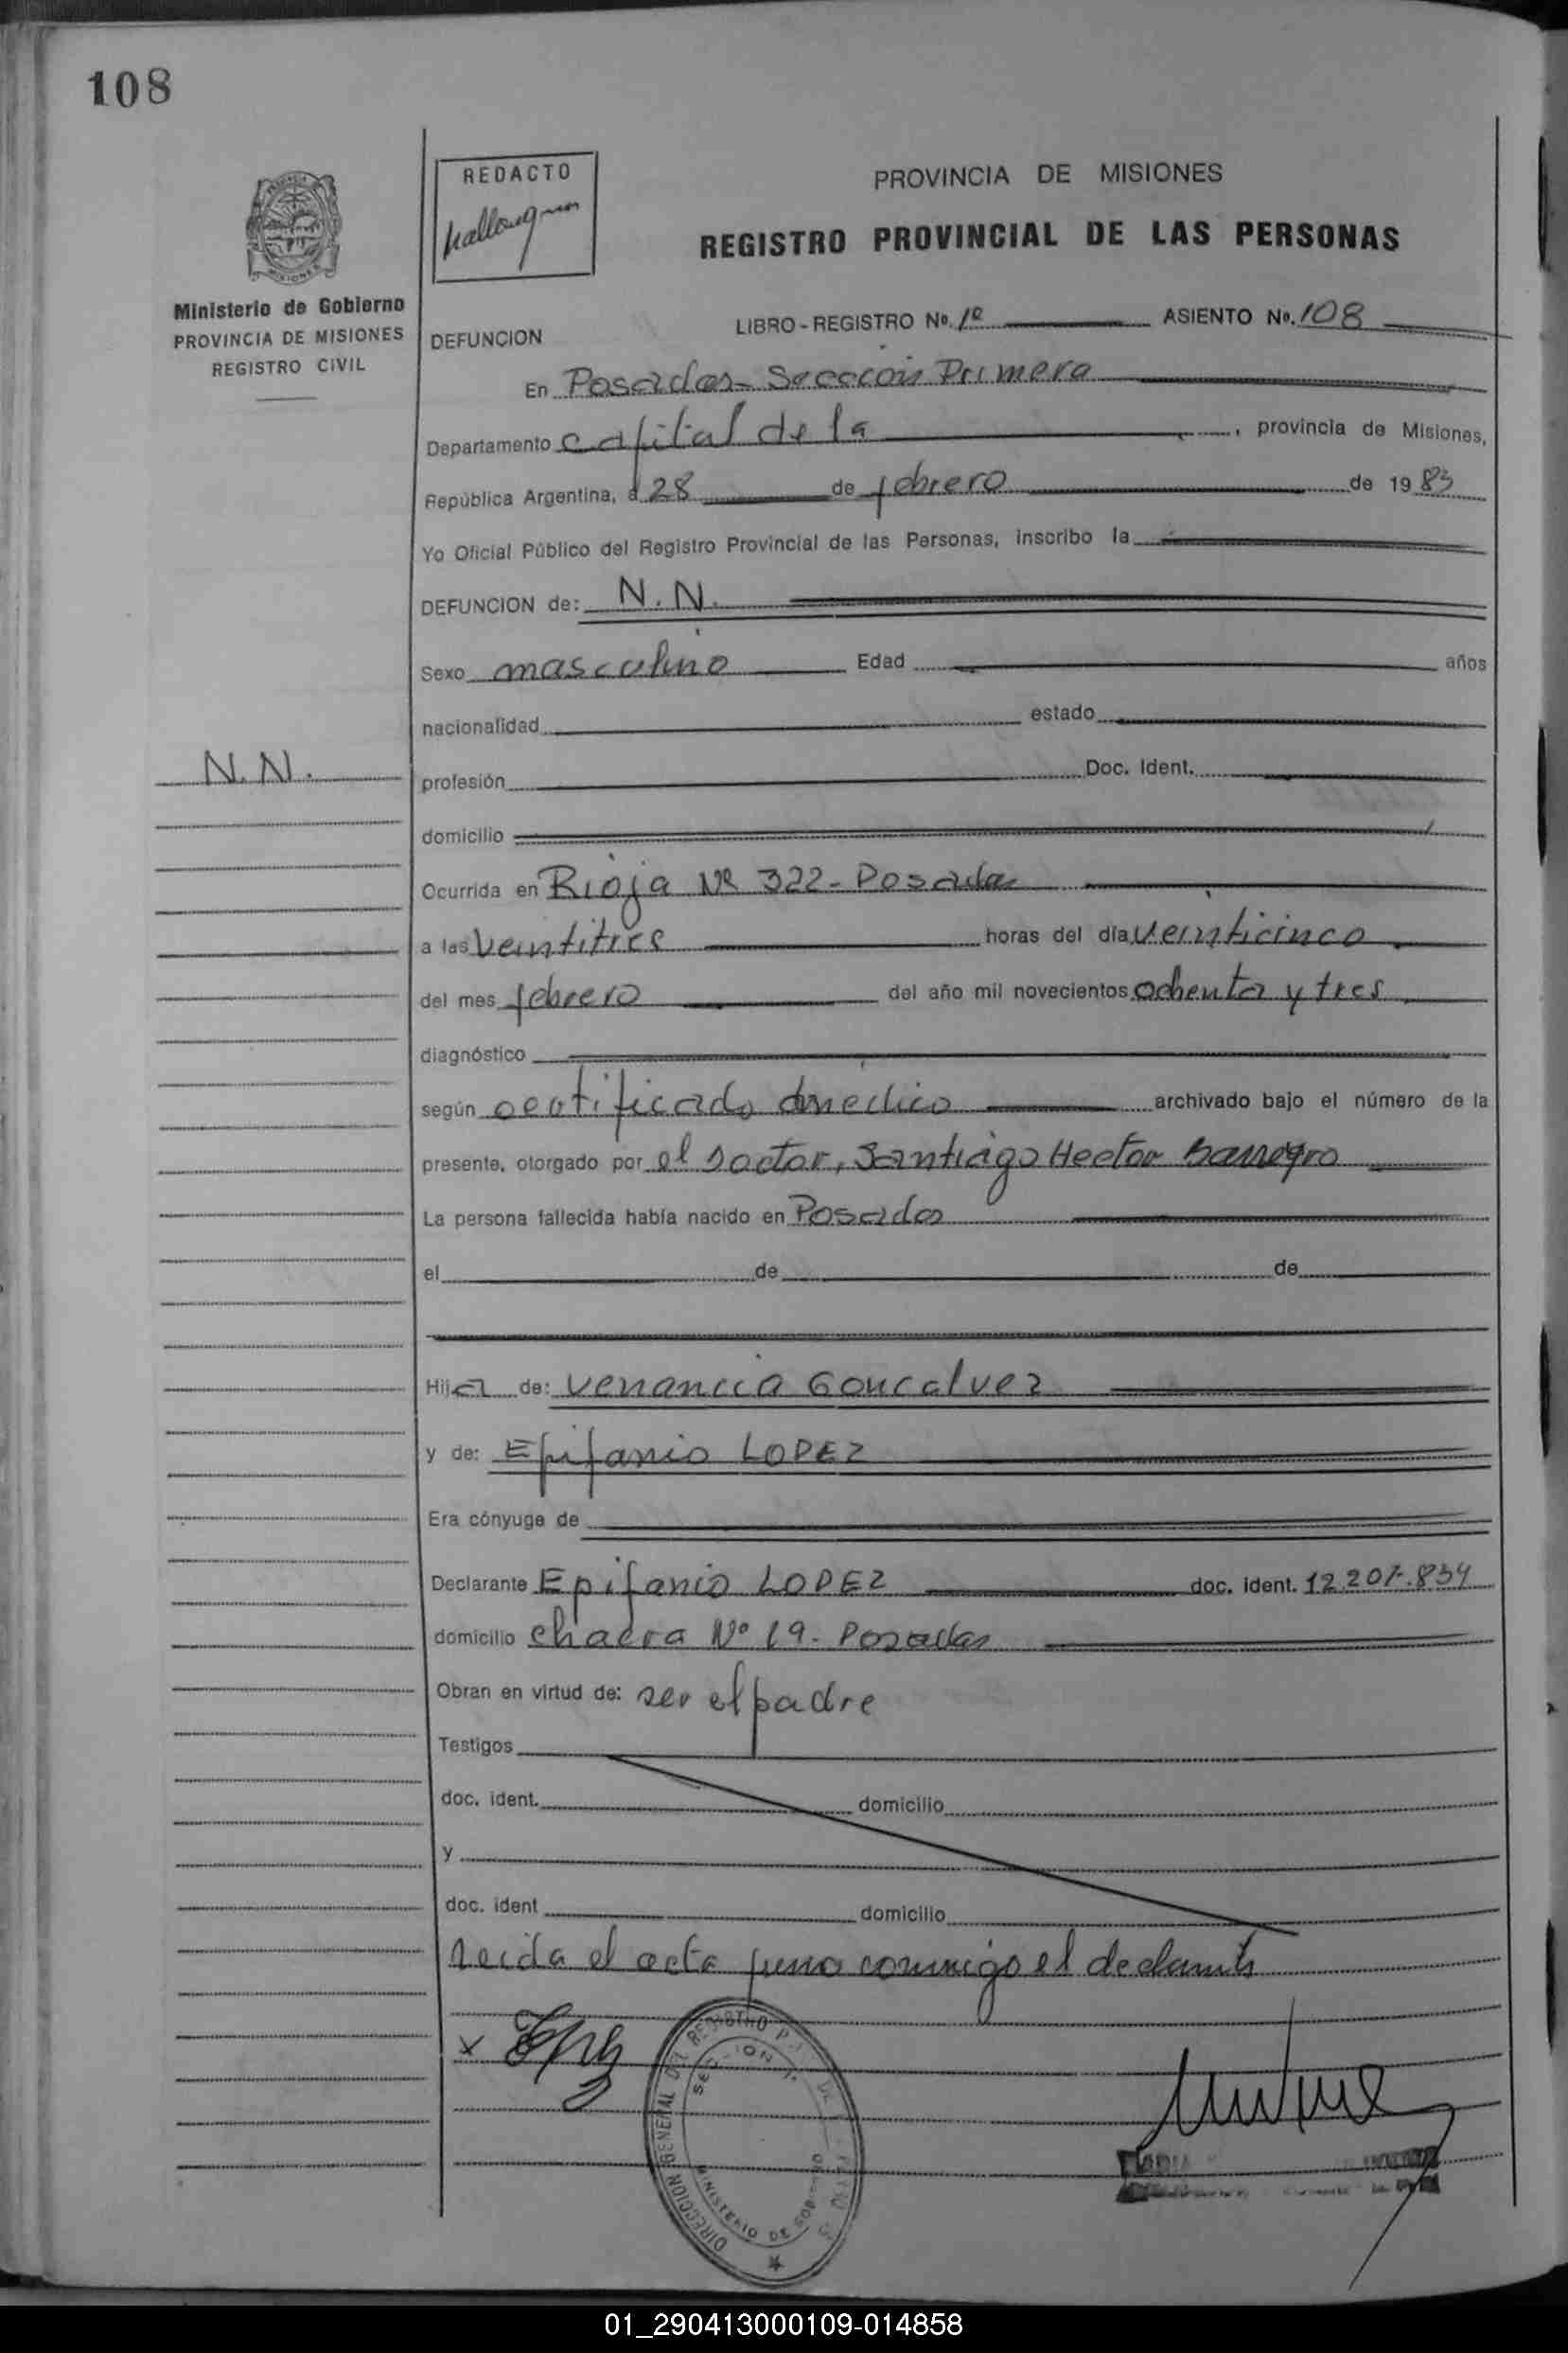 108
REDACTO
PROVINCIA DE MISIONES
REGISTRO PROVINCIAL DE LAS PERSONAS
Ministerio de Gobierno
PROVINCIA DE MISIONES
REGISTRO CIVIL
LIBRO - REGISTRO No. 1º ASIENTO No. 108
DEFUNCION
En Posadas - Sección Primera
Departamento capital de la , provincia de Misiones,
República Argentina, a 28 de febrero de 1983
Yo Oficial Público del Registro Provincial de las Personas, inscribo la
DEFUNCION de: N.N.
Sexo masculino Edad años
nacionalidad estado
N.N.
profesión Doc. Ident.
domicilio
Ocurrida en Rioja Nº 322 - Posadas
a las veintitres horas del día veinticinco
del mes febrero del año mil novecientos ochenta y tres
diagnóstico
según certificado médico archivado bajo el número de la
presente, otorgado por el Doctor, Santiago Hector
La persona fallecida había nacido en Posadas
el de de
Hija de: Venancia Goncalvez
y de: Epifanio LOPEZ
Era cónyuge de
Declarante Epifanio LOPEZ doc. ident. 12.207.834
domicilio chacra Nº 19 - Posadas
Obran en virtud de: ser el padre
Testigos
doc. ident. domicilio
y
doc. ident domicilio
Leida el acta firma conmigo el declarante
x
DIRECCION GENERAL DEL REGISTRO
SECCION 1
MINISTERIO DE GOBIERNO
01_290413000109-014858